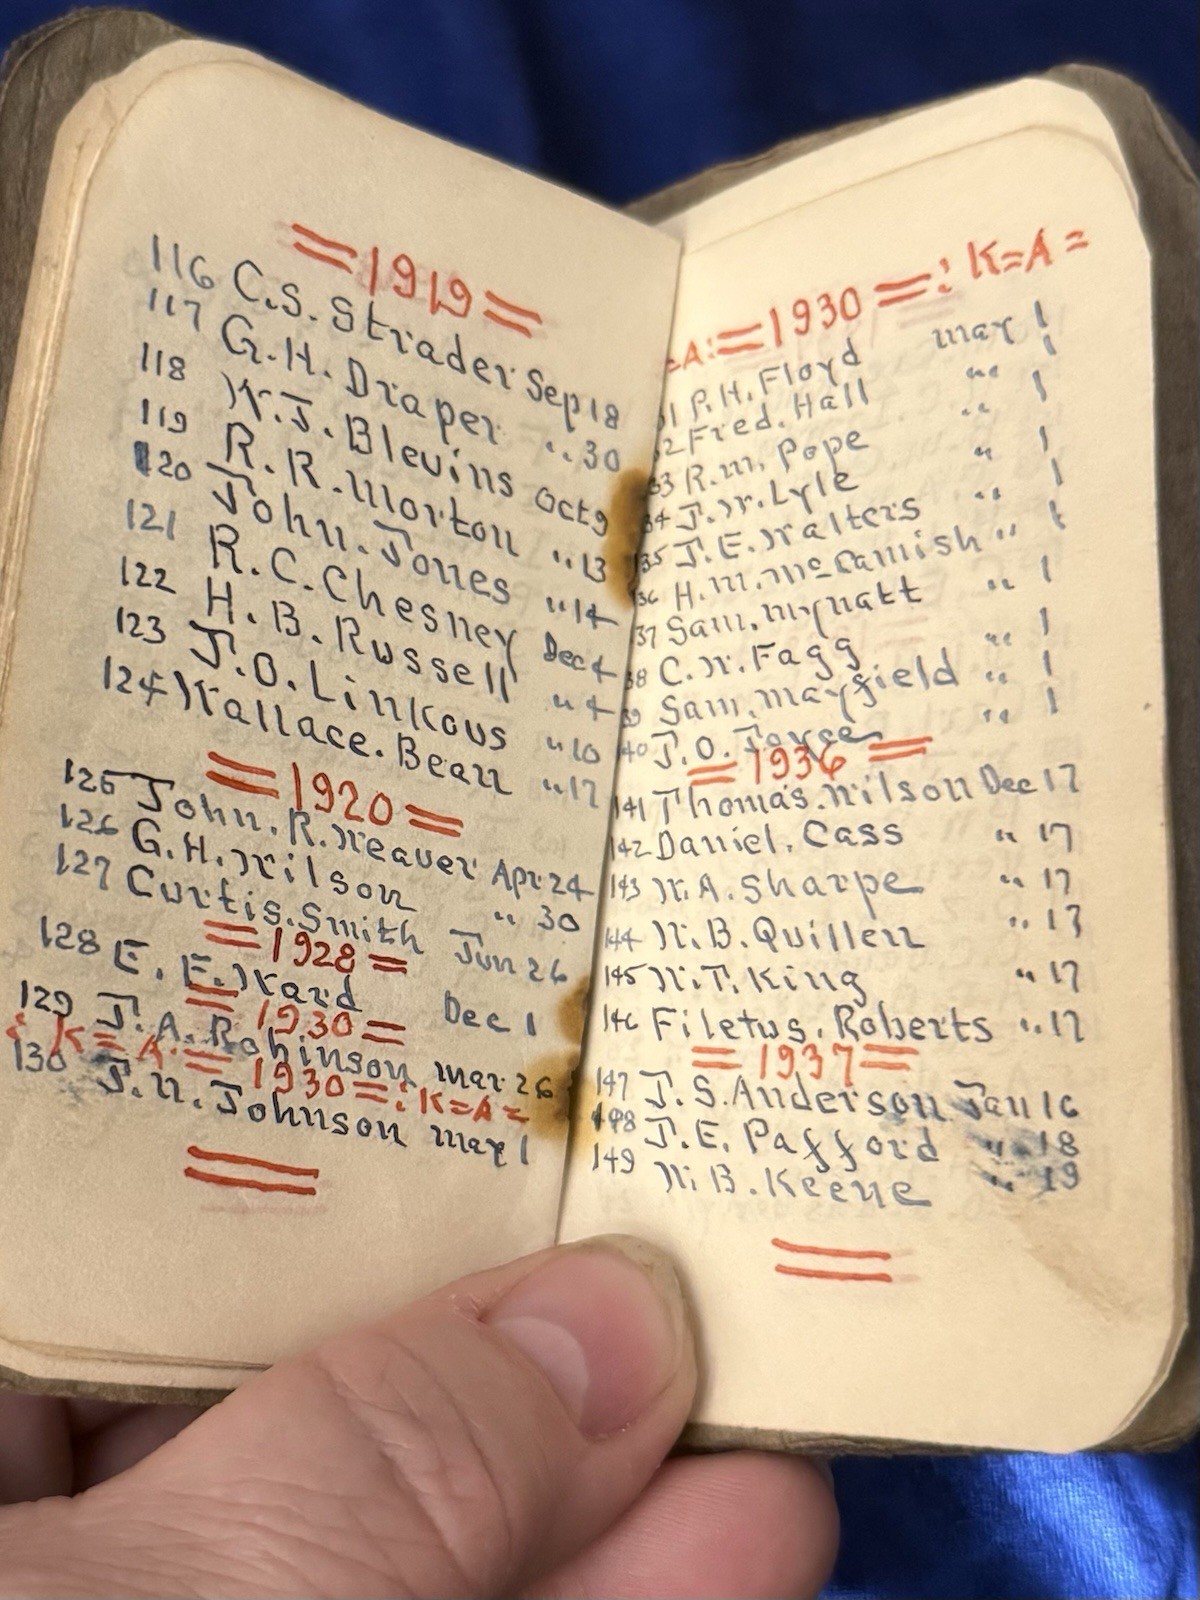 =1919=
116 C.S. Strader Sep 18
117 G.H. Draper " 30
118 W.J. Blevins Oct 9
119 R.R. Morton " 13
120 John. Jones " 14
121 R.C. Chesney Dec 4
122 H.B. Russell " 4
123 J.O. Linkous " 10
124 Wallace. Bean " 17
=1920=
125 John. R. Weaver Apr 24
126 G.H. Wilson " 30
127 Curtis. Smith Jun 26
=1928=
128 E. E. Ward Dec 1
=1930=
129 J. A. Robinson Mar 26
: K=A:=1930=: K=A=
130 J.N. Johnson May 1
=A:=1930=: K=A=
31 P.H. Floyd May 1
32 Fred. Hall " 1
33 R.M. Pope " 1
34 J.W. Lyle " 1
135 J.E. Walters " 1
136 H.M. McCamish " 1
137 Sam. Mynatt " 1
38 C.W. Fagg " 1
39 Sam. Mayfield " 1
140 J.O. Joyce " 1
=1936=
141 Thomas. Wilson Dec 17
142 Daniel. Cass " 17
143 W.A. Sharpe " 17
144 W.B. Quillen " 17
145 W.T. King " 17
146 Filetus. Roberts " 17
=1937=
147 J.S. Anderson Jan 16
148 J.E. Pafford " 18
149 W.B. Keene " 19